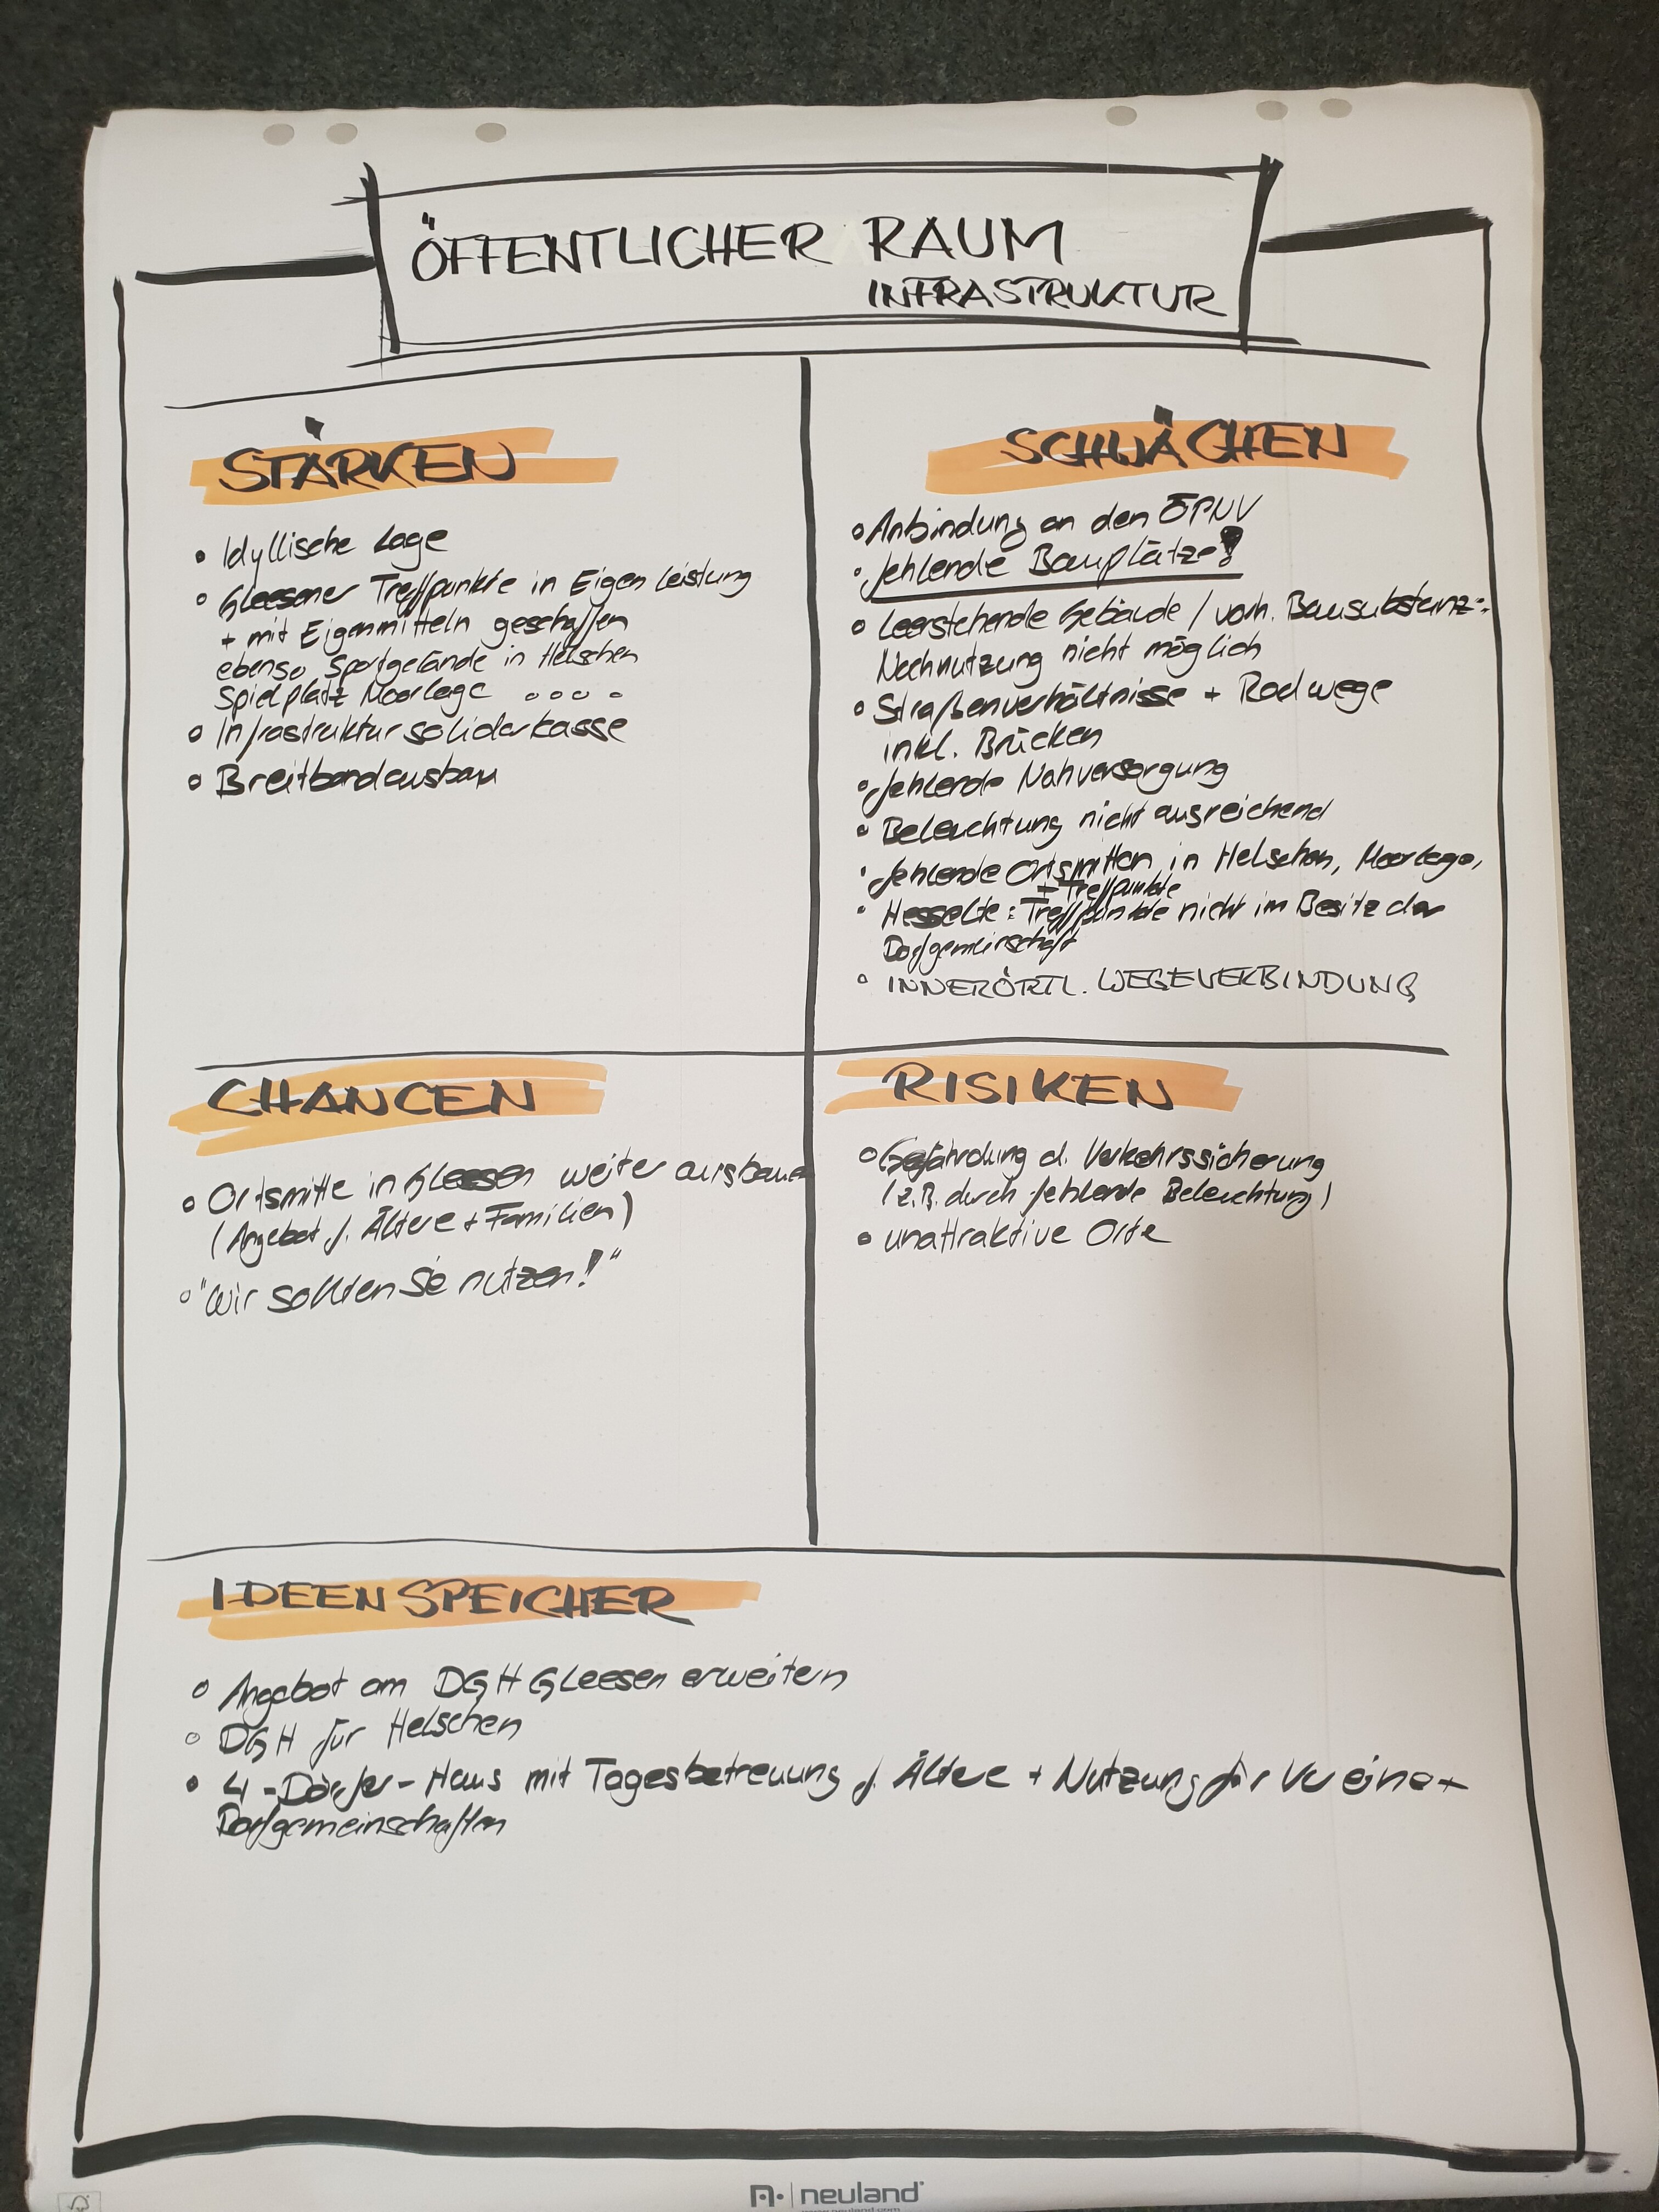 ÖFFENTLICHER RAUM
INFRASTRUKTUR
STÄRKEN
• Idyllische Lage
• Gleesener Treffpunkte in Eigenleistung
+ mit Eigenmitteln geschaffen
ebenso Sportgelände in Helschen
Spielplatz Moorlage ....
• Infrastruktursolidarkasse
• Breitbandausbau
SCHWÄCHEN
• Anbindung an den ÖPNV
• fehlende Bauplätze!
• Leerstehende Gebäude / vorh. Bausubstanz:
Nachnutzung nicht möglich
• Straßenverhältnisse + Radwege
inkl. Brücken
• fehlende Nahversorgung
• Beleuchtung nicht ausreichend
• fehlende Ortsmitten in Helschen, Moorlage,
+ Treffpunkte
• Hesselte: Treffpunkte nicht im Besitz der
Dorfgemeinschaft
• INNERÖRTL. WEGEVERBINDUNG
CHANCEN
• Ortsmitte in Gleesen weiter ausbauen
(Angebot f. Ältere + Familien)
• "Wir sollten Sie nutzen!"
RISIKEN
• Gefährdung d. Verkehrssicherung
(z.B. durch fehlende Beleuchtung)
• unattraktive Orte
IDEENSPEICHER
• Angebot am DGH Gleesen erweitern
• DGH für Helschen
• 4-Dörfer-Haus mit Tagesbetreuung f. Ältere + Nutzung für Vereine +
Dorfgemeinschaften
neuland